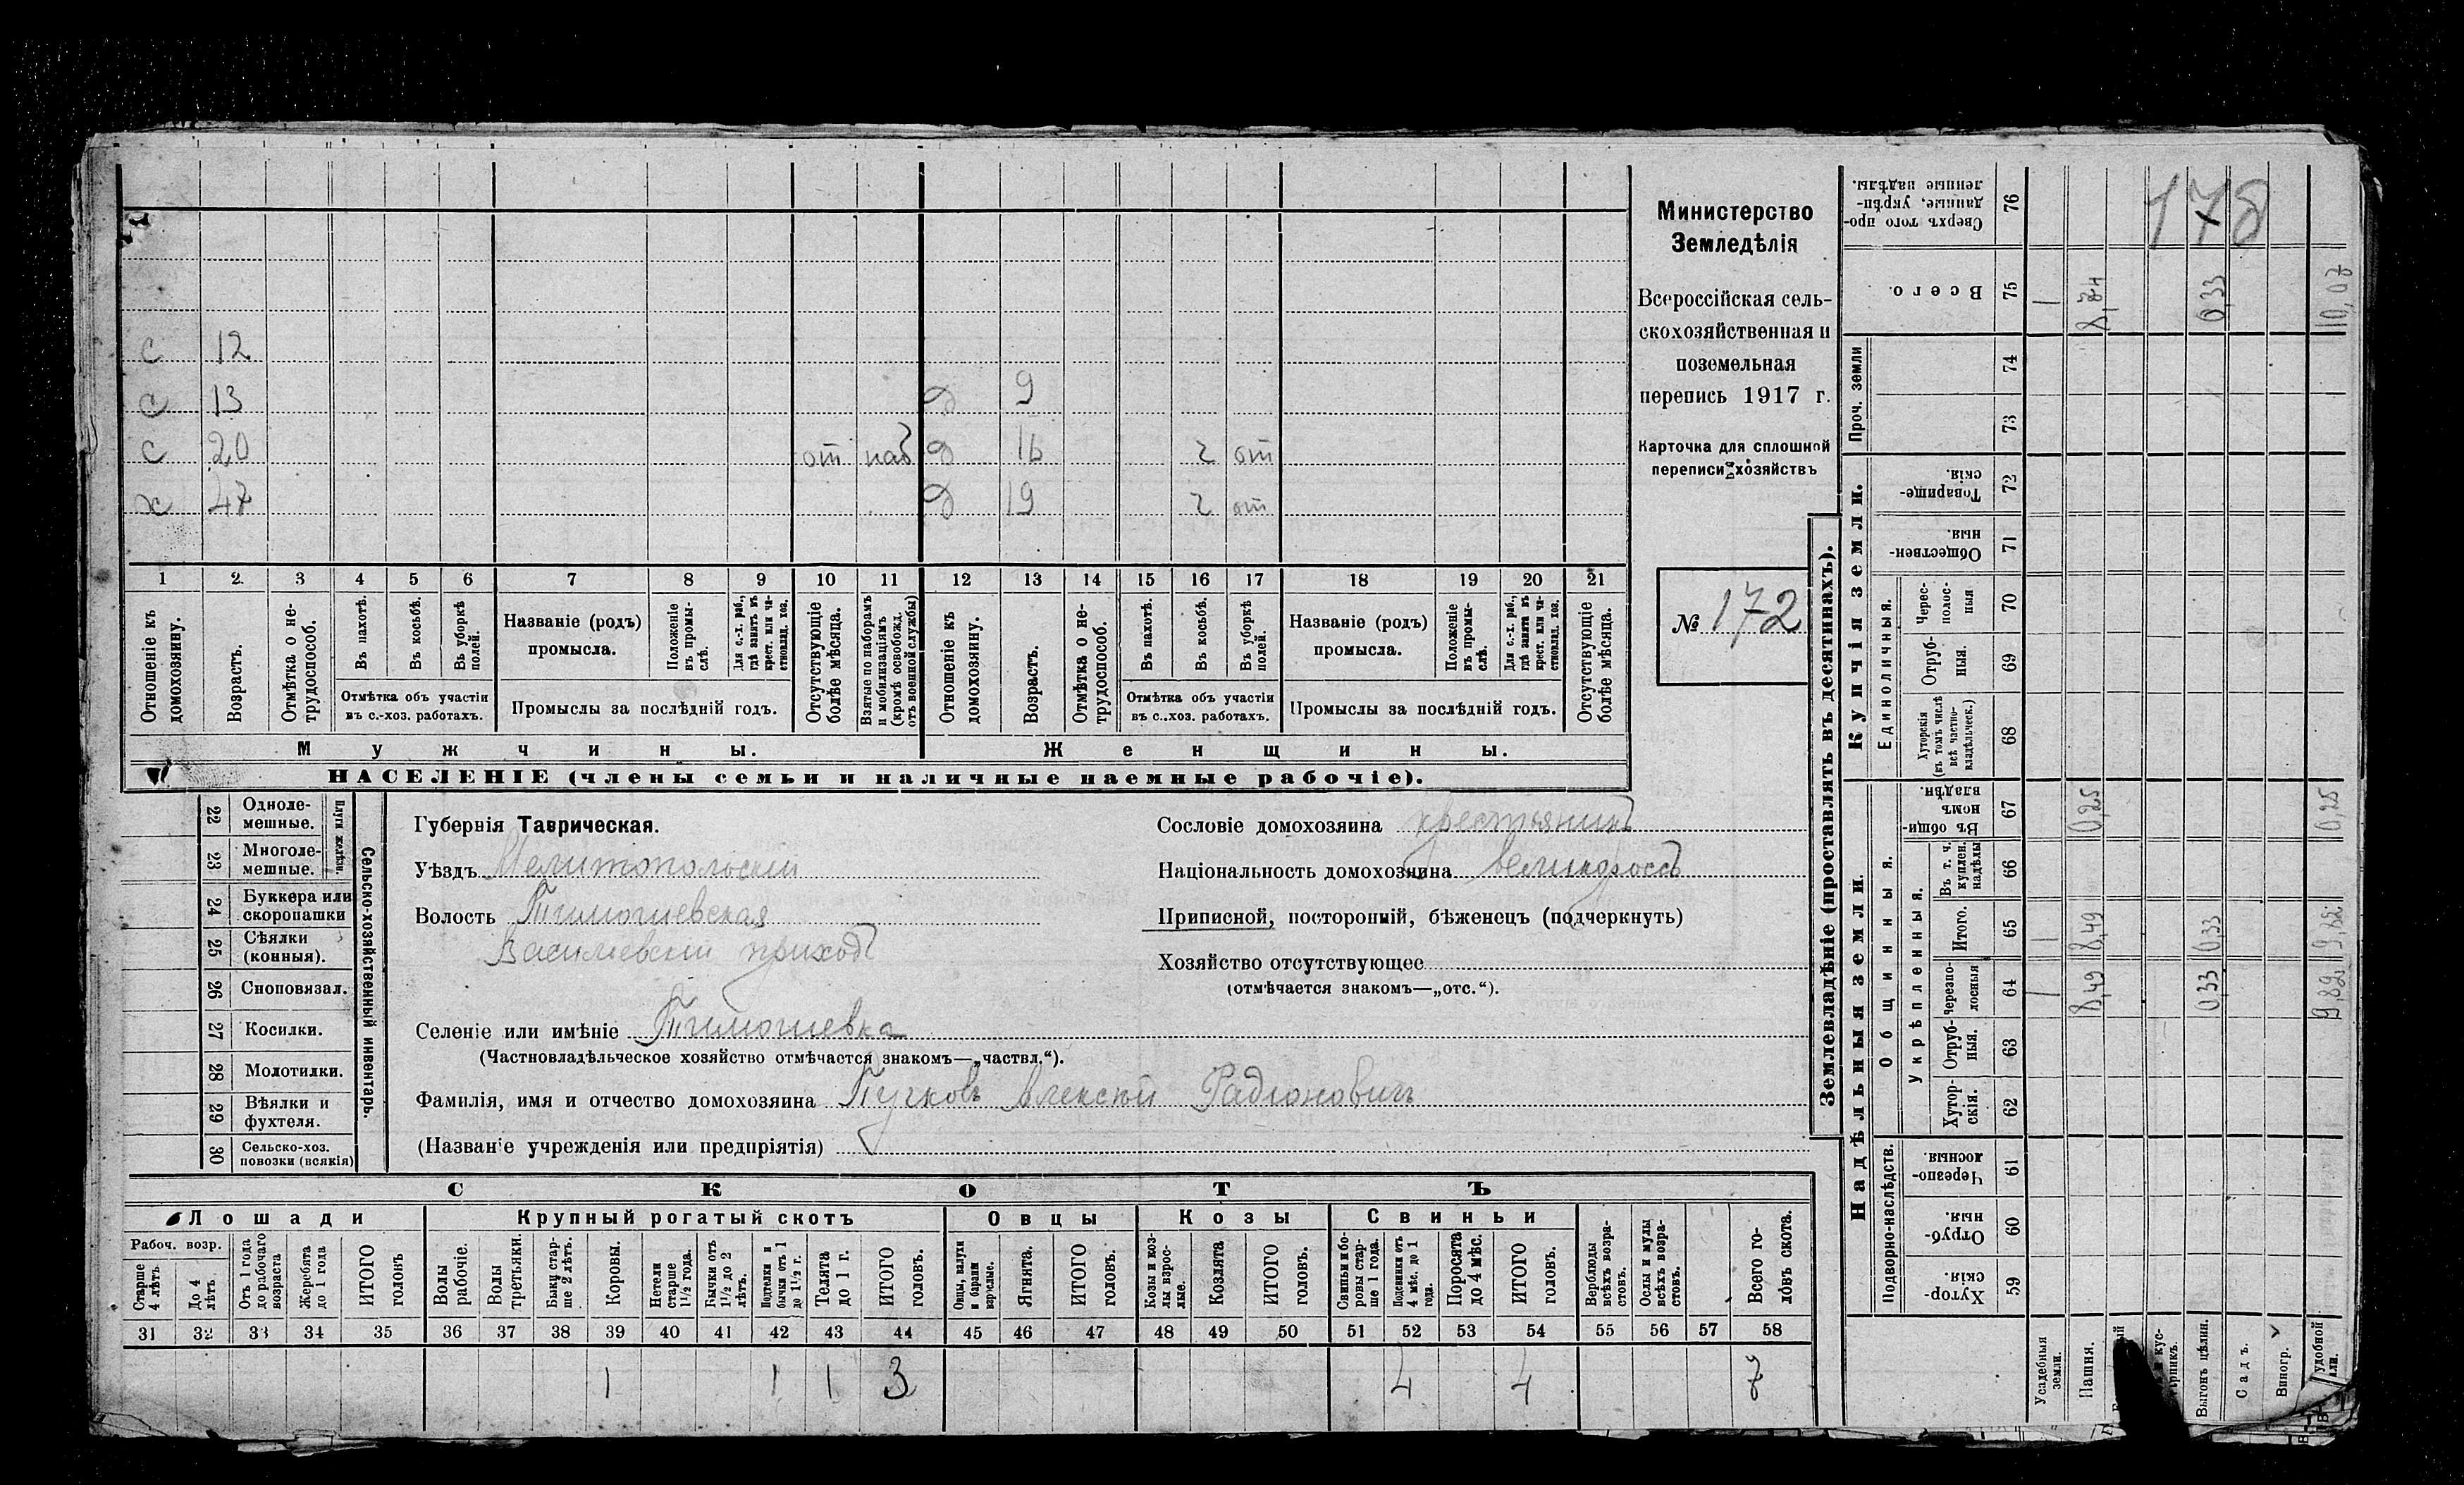 с 12
с 13 д 9
с 20 от наб д 16 2 от
х 47 д 19 2 от
1 2 3 4 5 6 7 8 9 10 11 12 13 14 15 16 17 18 19 20 21
Отношеніе къ домохозяину.
Возрастъ.
Отмѣтка о не-
трудоспособ.
Въ пахотѣ.
Въ косьбѣ.
Въ уборкѣ
полей.
Отмѣтка объ участіи
въ с.-хоз. работахъ.
Названіе (родъ)
промысла.
Положеніе
въ промы-
слѣ.
Для с.-х. раб.,
гдѣ занятъ въ
крест. или ча-
стновлад. хоз.
Промыслы за послѣдній годъ.
Отсутствующіе
болѣе мѣсяца.
Взятые по наборамъ
и мобилизаціямъ
(кромѣ освобожд.
отъ военной службы)
Отношеніе къ
домохозяину.
Возрастъ.
Отмѣтка о не-
трудоспособ.
Въ пахотѣ.
Въ косьбѣ.
Въ уборкѣ
полей.
Отмѣтка объ участіи
въ с..хоз. работахъ.
Названіе (родъ)
промысла.
Положеніе
въ промы-
слѣ.
Для с.-х. раб.,
гдѣ занята въ
крест. или ча-
стновлад. хоз.
Промыслы за послѣдній годъ.
Отсутствующіе
болѣе мѣсяца.
Мужчины.
Женщины.
НАСЕЛЕНІЕ (члены семьи и наличные наемные рабочіе).
Министерство
Земледѣлія
Всероссійская сель-
скохозяйственная и
поземельная
перепись 1917 г.
Карточка для сплошной
переписи хозяйствъ
№ 172
22 Одноле-
мешные.
23 Многоле-
мешные.
Плуги желѣзн.
24 Буккера или
скоропашки
25 Сѣялки
(конныя).
26 Сноповязал.
27 Косилки.
28 Молотилки.
29 Вѣялки и
фухтеля.
30 Сельско-хоз.
повозки (всякія)
Сельско-хозяйственный инвентарь.
Губернія Таврическая.
Уѣздъ Мелитопольскій
Волость Тимошевская
Василевскій приходъ
Селеніе или имѣніе Тимошевка
(Частновладѣльческое хозяйство отмѣчается знакомъ—„частвл.“).
Фамилія, имя и отчество домохозяина Пучковъ Алексѣй Радіоновичъ
(Названіе учрежденія или предпріятія)
Сословіе домохозяина крестьянинъ
Національность домохозяина великороссъ
Приписной, посторонній, бѣженецъ (подчеркнуть)
Хозяйство отсутствующее
(отмѣчается знакомъ—„отс.“).
СКОТЪ
Лошади
Рабоч. возр.
Старше
4 лѣтъ
До 4
лѣтъ
Отъ 1 года
до рабочаго
возраста
Жеребята
до 1 года
ИТОГО
головъ
Крупный рогатый скотъ
Волы
рабочіе.
Волы
третьяки.
Быки стар-
ше 2 лѣтъ.
Коровы.
Нетели
старше
1½ года.
Бычки отъ
1½ до 2
лѣтъ.
Подтелки и
бычки отъ 1
до 1½ г.
Телята
до 1 г.
ИТОГО
головъ.
Овцы
Овцы, валухи
и бараны
взрослые.
Ягнята.
ИТОГО
головъ.
Козы
Козы и коз-
лы взрос-
лые.
Козлята
ИТОГО
головъ.
Свиньи
Свиньи и бо-
ровы стар-
ше 1 года.
Подсвинки отъ
4 мѣс. до 1
года.
Поросята
до 4 мѣс.
ИТОГО
головъ.
Верблюды
всѣхъ возра-
стовъ.
Ослы и мулы
всѣхъ возра-
стовъ.
Всего го-
ловъ скота.
31 32 33 34 35 36 37 38 39 40 41 42 43 44 45 46 47 48 49 50 51 52 53 54 55 56 57 58
1 1 1 3 4 4 7
Землевладѣніе (проставлять въ десятинахъ).
Купчія земли.
Проч. земли
Единоличныя.
Надѣльныя земли.
Общинныя.
Укрѣпленныя.
Подворно-наслѣдств.
178
76 Сверхъ того про-
данные, укрѣп-
ленные надѣлы.
75 Всего. 1 8,74 0,33 10,07
74
73
72 Товарище-
скія.
71 Обществен-
ныя
70 Черес-
полос-
ныя
69 Отруб-
ныя.
68 Хуторскія
(въ томъ числѣ
всѣ частно-
владѣльческ.)
67 Въ общи-
номъ
владѣн. 0,25 0,25
66 Въ т. ч.
куплен.
надѣлы
65 Итого. 1 8,49 0,33 9,82
64 Черезпо-
лосныя 1 8,49 0,33 9,82
63 Отруб-
ныя.
62 Хутор-
скія.
61 Черезпо-
лосныя.
60 Отруб-
ныя.
59 Хутор-
скія.
Усадебныя
земли.
Пашня.
Выгонъ цѣлин.
Садъ.
Виногр.
удобной